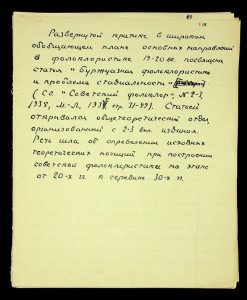 60
Развернутой критике в широком
обобщающем плане основных направлений
в фольклористике 19-20 вв. посвящена
статья "Буржуазная фольклористика
и проблема стадиальности"
(Сб. "Советский фольклор", № 2-3,
1935, М.-Л., 1935 стр. 31-49). Статьей
открывался общетеоретический отдел,
организованный с 2-3 вып. издания.
Речь шла об определении исходных
теоретических позиций при построении
советской фольклористики на этапе
от 20-х гг. к середине 30-х гг.